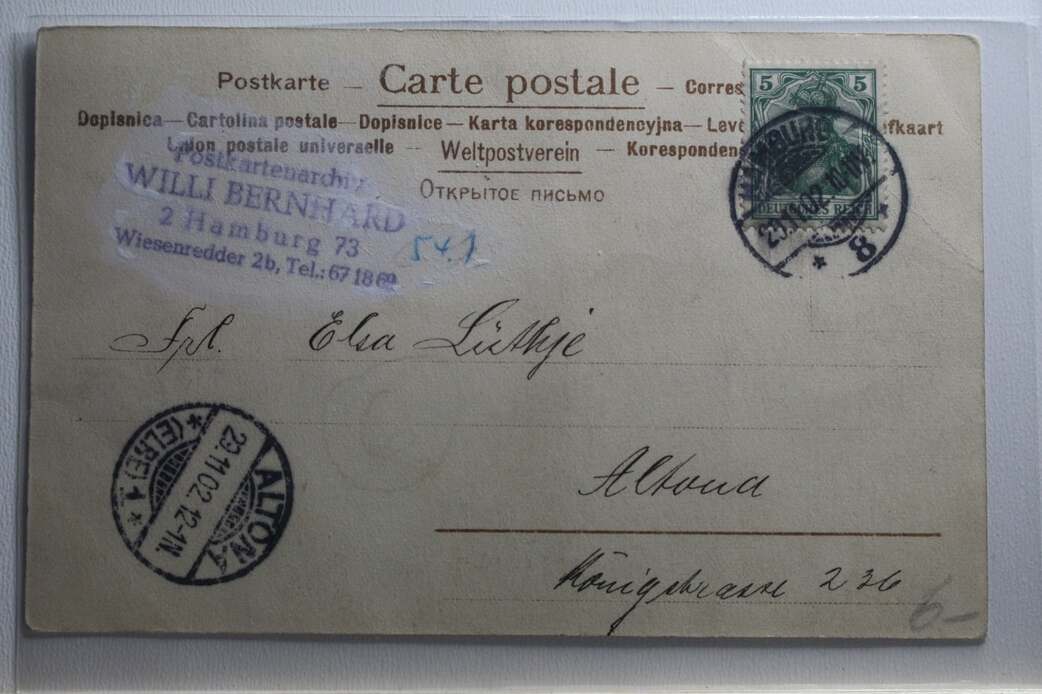 Postkarte — Carte postale — Corres
Dopisnica — Cartolina postale — Dopisnice — Karta korespondencyjna — Lev efkaart
Union postale universelle — Weltpostverein — Koresponden
Открытое письмо
5 5
DEUTSCHES REICH
HAMBURG
29.11.02.
* 8 *
Postkartenarchiv
WILLI BERNHARD
2 Hamburg 73
Wiesenredder 2b, Tel.: 67 18 69
54.1
Frl. Elsa Lüthje
ALTONA
29.11.02.12-1N.
* (ELBE) 1 *
Altona
Königstrasse 236
6-